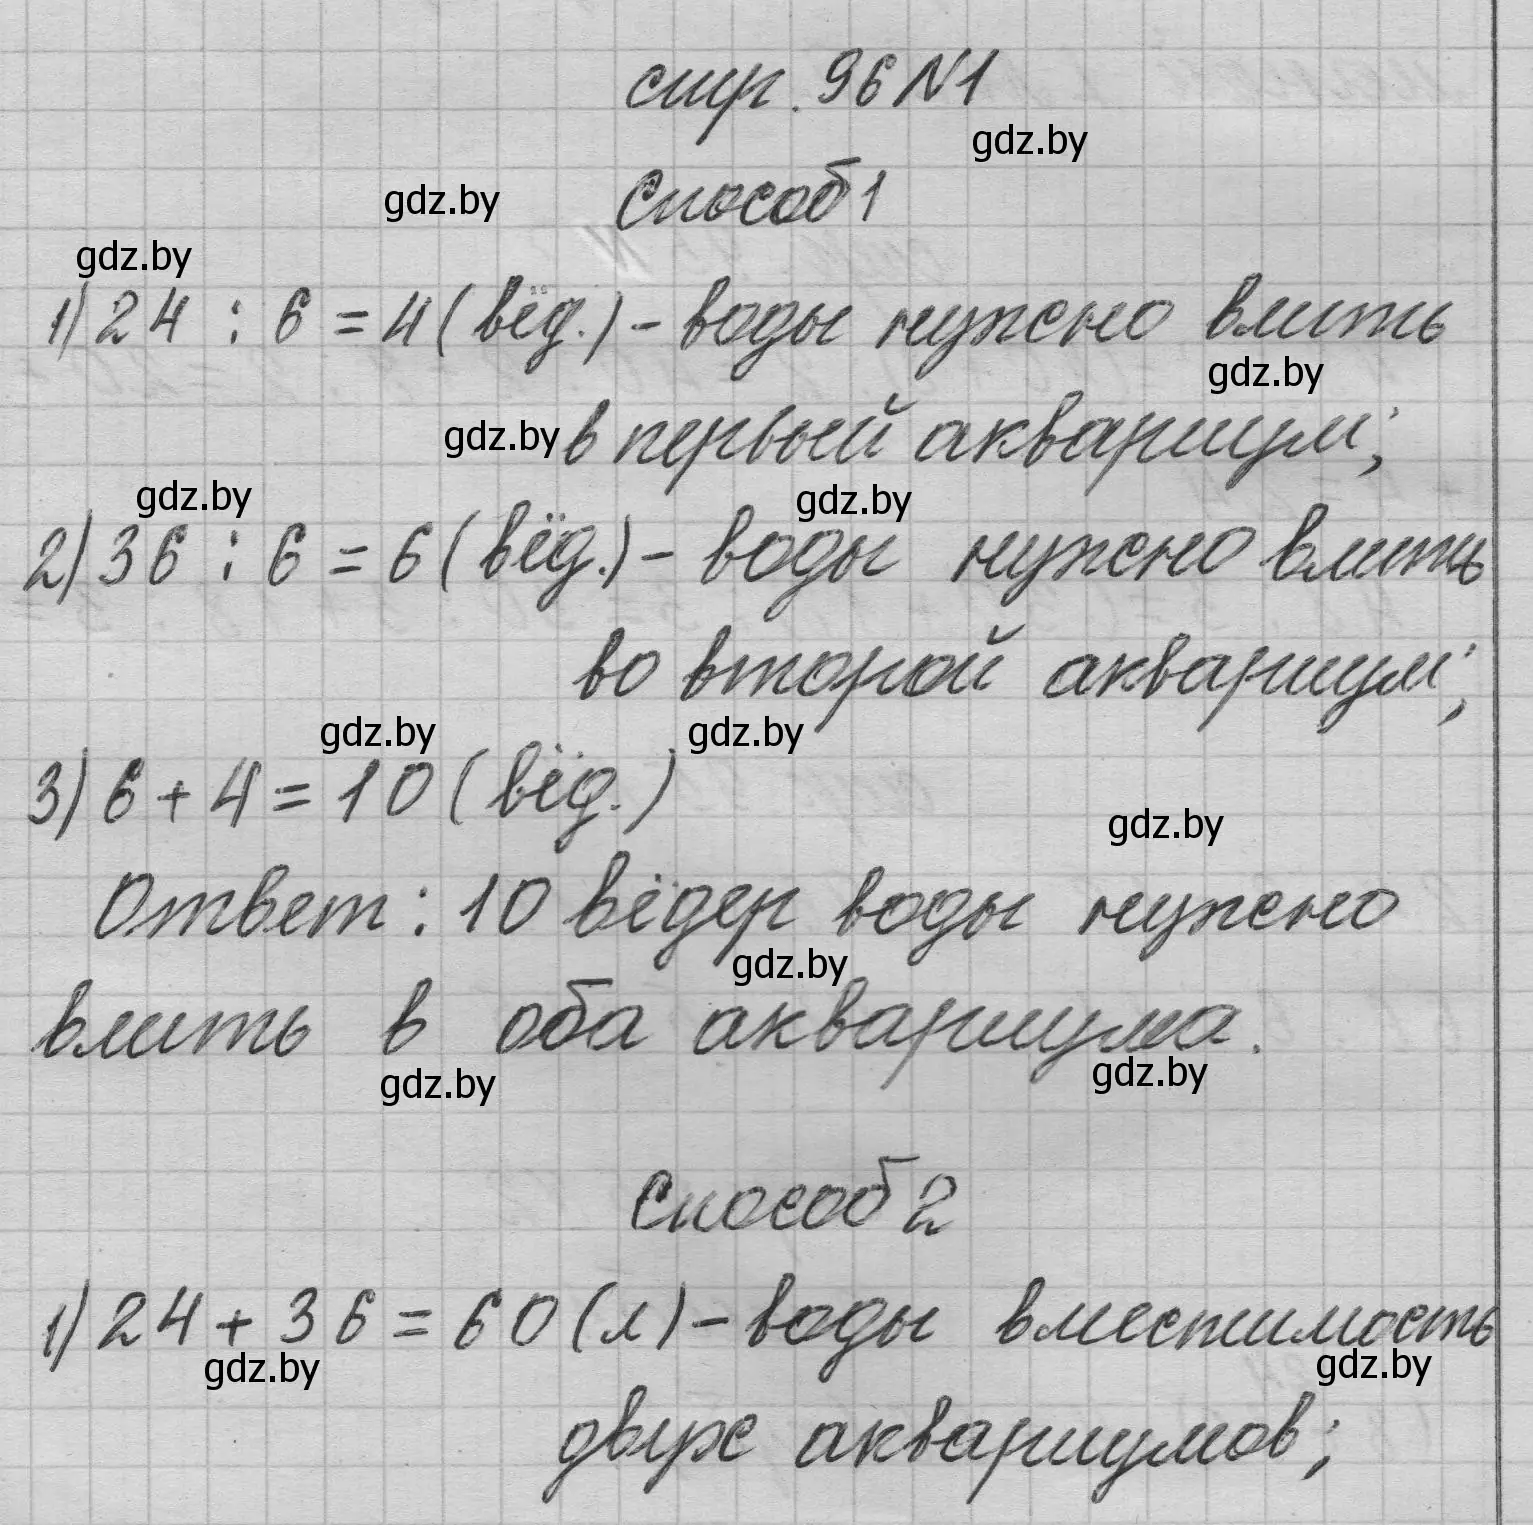 стр. 96 №1
gdz.by
Способ 1
gdz.by
gdz.by
1) 24 : 6 = 4 (вёд.) - воды нужно влить
gdz.by
gdz.by
в первый аквариум;
gdz.by
gdz.by
2) 36 : 6 = 6 (вёд.) - воды нужно влить
во второй аквариум;
gdz.by
gdz.by
3) 6 + 4 = 10 (вёд.)
gdz.by
Ответ: 10 вёдер воды нужно
gdz.by
влить в оба аквариума.
gdz.by
gdz.by
Способ 2
1) 24 + 36 = 60 (л) - воды вместимость
gdz.by
gdz.by
двух аквариумов;